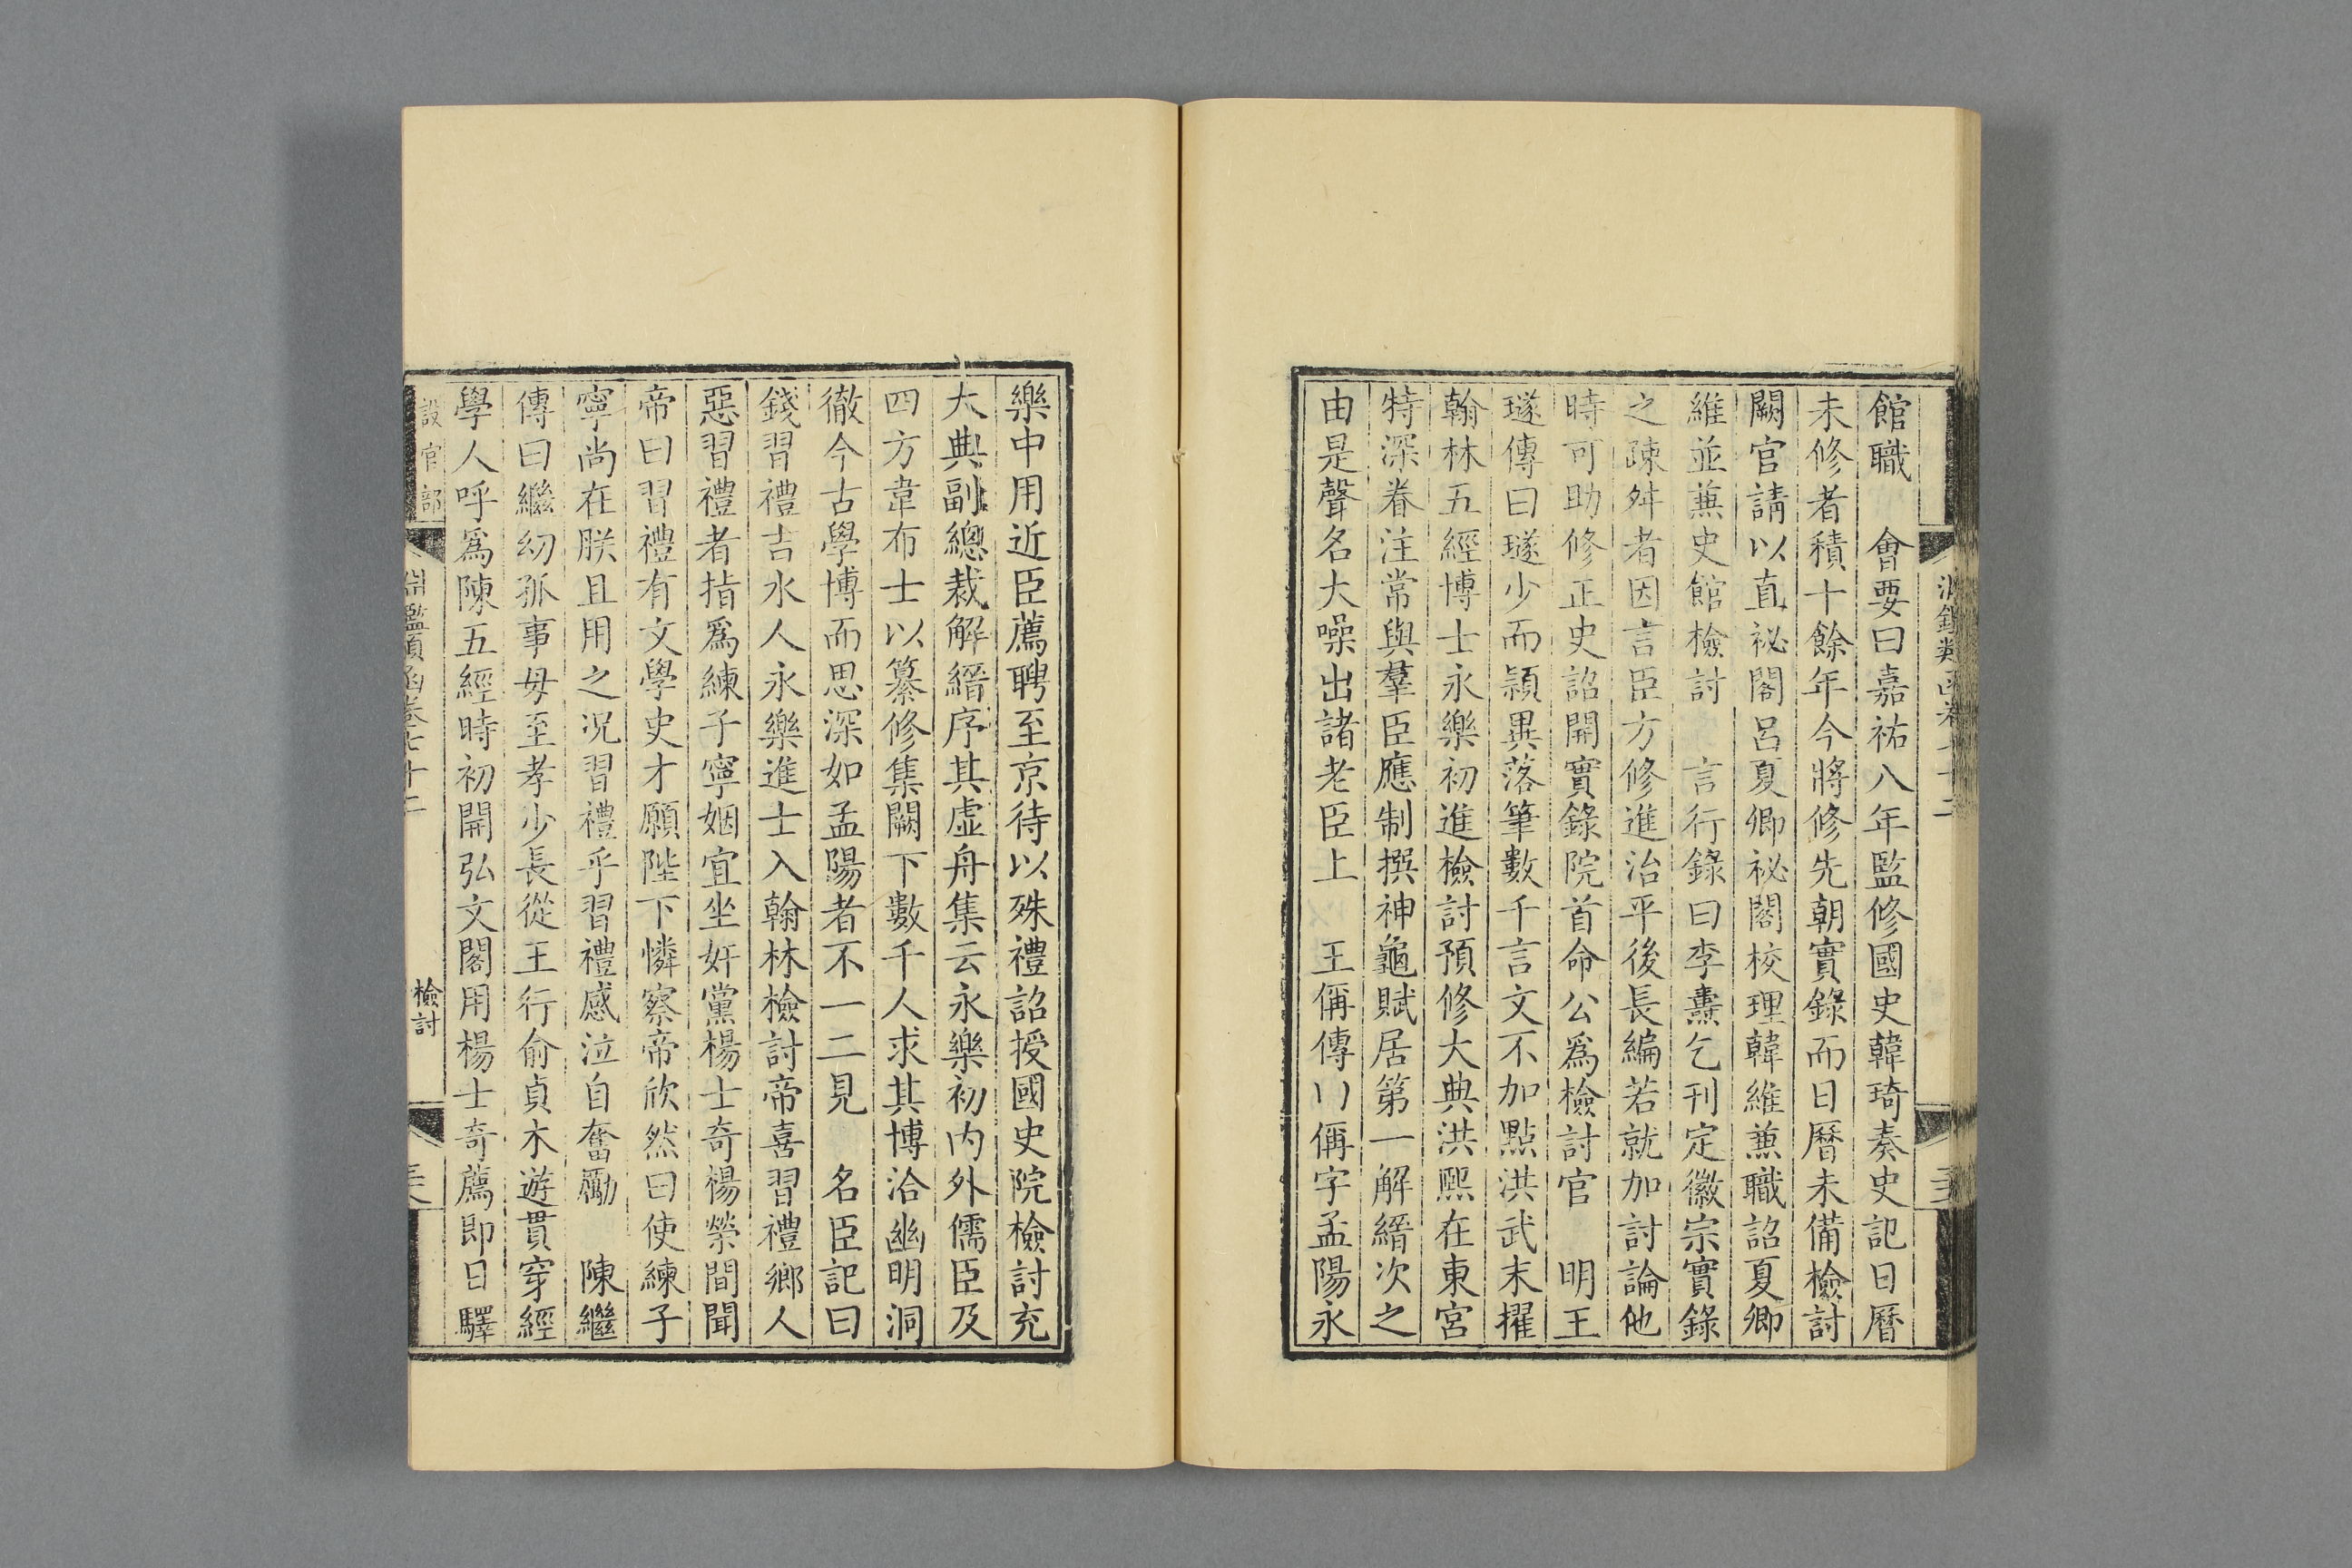 館職　會要曰嘉祐八年監修國史韓琦奏史記日曆
未修者積十餘年今將修先朝實錄而日曆未備檢討
闕官請以直祕閣呂夏卿祕閣校理韓維兼職詔夏卿
維並兼史館檢討　言行錄曰李燾乞刊定徽宗實錄
之疎舛者因言臣方修進治平後長編若就加討論他
時可助修正史詔開實錄院首命公爲檢討官　明王
璲傳曰璲少而穎異落筆數千言文不加點洪武末擢
翰林五經博士永樂初進檢討預修大典洪熙在東宮
特深眷注常與羣臣應制撰神龜賦居第一解縉次之
由是聲名大噪出諸老臣上　王偁傳曰偁字孟陽永
樂中用近臣薦聘至京待以殊禮詔授國史院檢討充
大典副總裁解縉序其虛舟集云永樂初內外儒臣及
四方韋布士以纂修集闕下數千人求其博洽幽明洞
徹今古學博而思深如孟陽者不一二見　名臣記曰
錢習禮吉水人永樂進士入翰林檢討帝喜習禮鄉人
惡習禮者指爲練子寧姻宜坐奸黨楊士奇楊榮間聞
帝曰習禮有文學史才願陛下憐察帝欣然曰使練子
寧尚在朕且用之況習禮乎習禮感泣自奮勵　陳繼
傳曰繼幼孤事母至孝少長從王行俞貞木遊貫穿經
學人呼爲陳五經時初開弘文閣用楊士奇薦即日驛
設官部　淵鑑類函卷七十二　檢討